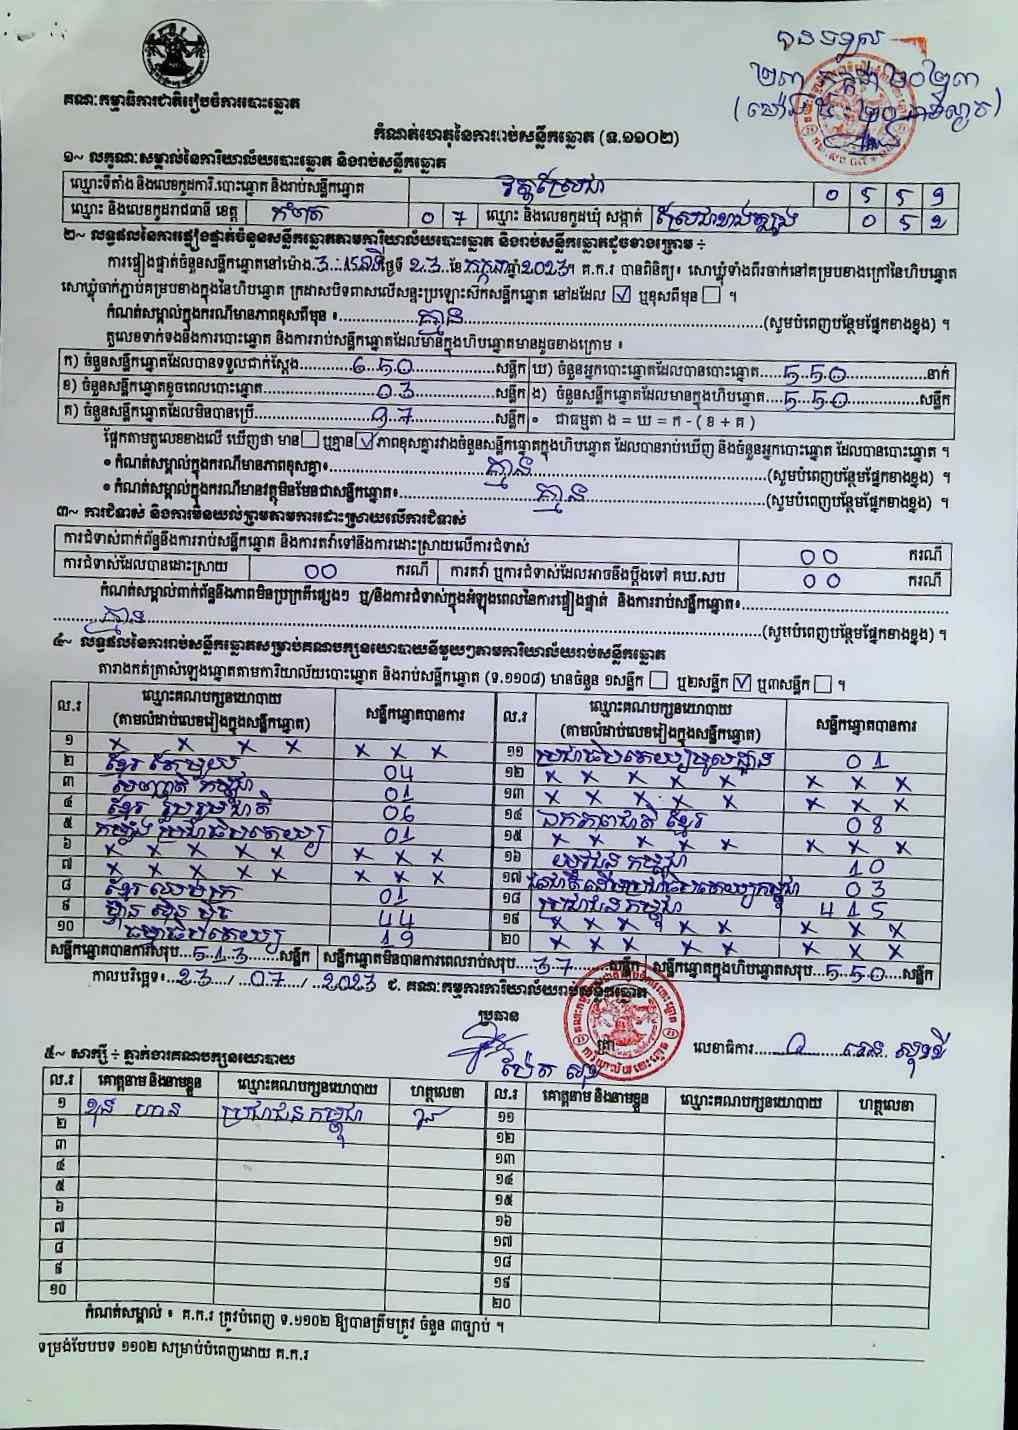 បានទទួល
២៣ កក្កដា ២០២៣
គណៈកម្មាធិការជាតិរៀបចំការបោះឆ្នោត
កំណត់ហេតុនៃការរាប់សន្លឹកឆ្នោត (ទ.១១០២)
១~ លក្ខណៈសម្គាល់នៃការិយាល័យបោះឆ្នោត និងរាប់សន្លឹកឆ្នោត
ឈ្មោះទីតាំង និងលេខកូដការិ.បោះឆ្នោត និងរាប់សន្លឹកឆ្នោត វត្តស្រែជា 0 5 5 9
ឈ្មោះ និងលេខកូដរាជធានី ខេត្ត កំពត 0 7 ឈ្មោះ និងលេខកូដឃុំ សង្កាត់ ស្រែជាខាងត្បូង 0 5 2
២~ លទ្ធផលនៃការផ្ទៀងផ្ទាត់ចំនួនសន្លឹកឆ្នោតតាមការិយាល័យបោះឆ្នោត និងរាប់សន្លឹកឆ្នោតដូចខាងក្រោម ÷
ការផ្ទៀងផ្ទាត់ចំនួនសន្លឹកឆ្នោតនៅម៉ោង 3:15នាទី ថ្ងៃទី 23 ខែ កក្កដា ឆ្នាំ 2023។ គ.ក.រ បានពិនិត្យ៖ សោឃ្លុំទាំងពីរចាក់នៅគម្របខាងក្រៅនៃហិបឆ្នោត
សោឃ្លុំចាក់ភ្ជាប់គម្របខាងក្នុងនៃហិបឆ្នោត ក្រដាសបិទពាសលើសន្ទះប្រឡោះស៊កសន្លឹកឆ្នោត នៅដដែល ☑ ឬខុសពីមុន ☐ ។
កំណត់សម្គាល់ក្នុងករណីមានភាពខុសពីមុន ៖ គ្មាន (សូមបំពេញបន្ថែមផ្នែកខាងខ្នង) ។
តួលេខទាក់ទងនឹងការបោះឆ្នោត និងការរាប់សន្លឹកឆ្នោតដែលមានក្នុងហិបឆ្នោតមានដូចខាងក្រោម ៖
ក) ចំនួនសន្លឹកឆ្នោតដែលបានទទួលជាក់ស្តែង 650 សន្លឹក ឃ) ចំនួនអ្នកបោះឆ្នោតដែលបានបោះឆ្នោត 550 នាក់
ខ) ចំនួនសន្លឹកឆ្នោតខូចពេលបោះឆ្នោត 03 សន្លឹក ង) ចំនួនសន្លឹកឆ្នោតដែលមានក្នុងហិបឆ្នោត 550 សន្លឹក
គ) ចំនួនសន្លឹកឆ្នោតដែលមិនបានប្រើ 97 សន្លឹក ៖ ជាធម្មតា ង = ឃ = ក - ( ខ + គ )
ផ្អែកតាមតួលេខខាងលើ ឃើញថា មាន ☐ ឬគ្មាន ☑ ភាពខុសគ្នារវាងចំនួនសន្លឹកឆ្នោតក្នុងហិបឆ្នោត ដែលបានរាប់ឃើញ និងចំនួនអ្នកបោះឆ្នោត ដែលបានបោះឆ្នោត ។
• កំណត់សម្គាល់ក្នុងករណីមានភាពខុសគ្នា៖ គ្មាន (សូមបំពេញបន្ថែមផ្នែកខាងខ្នង) ។
• កំណត់សម្គាល់ក្នុងករណីមានវត្ថុមិនមែនជាសន្លឹកឆ្នោត៖ គ្មាន (សូមបំពេញបន្ថែមផ្នែកខាងខ្នង) ។
៣~ ការជំទាស់ និងការមិនយល់ព្រមតាមការដោះស្រាយលើការជំទាស់
ការជំទាស់ពាក់ព័ន្ធនឹងការរាប់សន្លឹកឆ្នោត និងការតវ៉ាទៅនឹងការដោះស្រាយលើការជំទាស់ 00 ករណី
ការជំទាស់ដែលបានដោះស្រាយ 00 ករណី ការតវ៉ា ឬការជំទាស់ដែលអាចនឹងប្តឹងទៅ គឃ.សប 00 ករណី
កំណត់សម្គាល់ពាក់ព័ន្ធនឹងភាពមិនប្រក្រតីផ្សេងៗ ឬ/និងការជំទាស់ក្នុងអំឡុងពេលនៃការផ្ទៀងផ្ទាត់ និងការរាប់សន្លឹកឆ្នោត៖
គ្មាន (សូមបំពេញបន្ថែមផ្នែកខាងខ្នង) ។
៤~ លទ្ធផលនៃការរាប់សន្លឹកឆ្នោតសម្រាប់គណបក្សនយោបាយនីមួយៗតាមការិយាល័យរាប់សន្លឹកឆ្នោត
តារាងកត់ត្រាសំឡេងឆ្នោតតាមការិយាល័យបោះឆ្នោត និងរាប់សន្លឹកឆ្នោត (ទ.១១០៨) មានចំនួន ១សន្លឹក ☐ ឬ២សន្លឹក ☑ ឬ៣សន្លឹក ☐ ។
ល.រ ឈ្មោះគណបក្សនយោបាយ (តាមលំដាប់លេខរៀងក្នុងសន្លឹកឆ្នោត) សន្លឹកឆ្នោតបានការ ល.រ ឈ្មោះគណបក្សនយោបាយ (តាមលំដាប់លេខរៀងក្នុងសន្លឹកឆ្នោត) សន្លឹកឆ្នោតបានការ
១ x x x x x x x ១១ ប្រជាធិបតេយ្យមូលដ្ឋាន 01
២ ខ្មែរតែមួយ 04 ១២ x x x x x x x x
៣ សញ្ជាតិកម្ពុជា 01 ១៣ x x x x x x x x
៤ ខ្មែររួបរួមជាតិ 06 ១៤ ឯកភាពជាតិខ្មែរ 08
៥ កម្លាំងប្រជាធិបតេយ្យ 01 ១៥ x x x x x x x x
៦ x x x x x x x x ១៦ យុវជនកម្ពុជា 10
៧ x x x x x x x x ១៧ ជនជាតិដើមប្រជាធិបតេយ្យកម្ពុជា 03
៨ ខ្មែរឈប់ក្រ 01 ១៨ ប្រជាជនកម្ពុជា 415
៩ ហ្វ៊ុនស៊ិនប៉ិច 44 ១៩ x x x x x x x x
១០ ធម្មាធិបតេយ្យ 19 ២០ x x x x x x x x
សន្លឹកឆ្នោតបានការសរុប 513 សន្លឹក សន្លឹកឆ្នោតមិនបានការពេលរាប់សរុប 37 សន្លឹក សន្លឹកឆ្នោតក្នុងហិបឆ្នោតសរុប 550 សន្លឹក
កាលបរិច្ឆេទ៖ 23 / 07 / 2023 ជ. គណៈកម្មការការិយាល័យរាប់សន្លឹកឆ្នោត
ប្រធាន
លេខាធិការ
៥~ សាក្សី ÷ ភ្នាក់ងារគណបក្សនយោបាយ
ល.រ គោត្តនាម និងនាមខ្លួន ឈ្មោះគណបក្សនយោបាយ ហត្ថលេខា ល.រ គោត្តនាម និងនាមខ្លួន ឈ្មោះគណបក្សនយោបាយ ហត្ថលេខា
១ ប្រជាជនកម្ពុជា ១១
២ ១២
៣ ១៣
៤ ១៤
៥ ១៥
៦ ១៦
៧ ១៧
៨ ១៨
៩ ១៩
១០ ២០
កំណត់សម្គាល់ ៖ គ.ក.រ ត្រូវបំពេញ ទ.១១០២ ឱ្យបានត្រឹមត្រូវ ចំនួន ៣ច្បាប់ ។
ទម្រង់បែបបទ ១១០២ សម្រាប់បំពេញដោយ គ.ក.រ